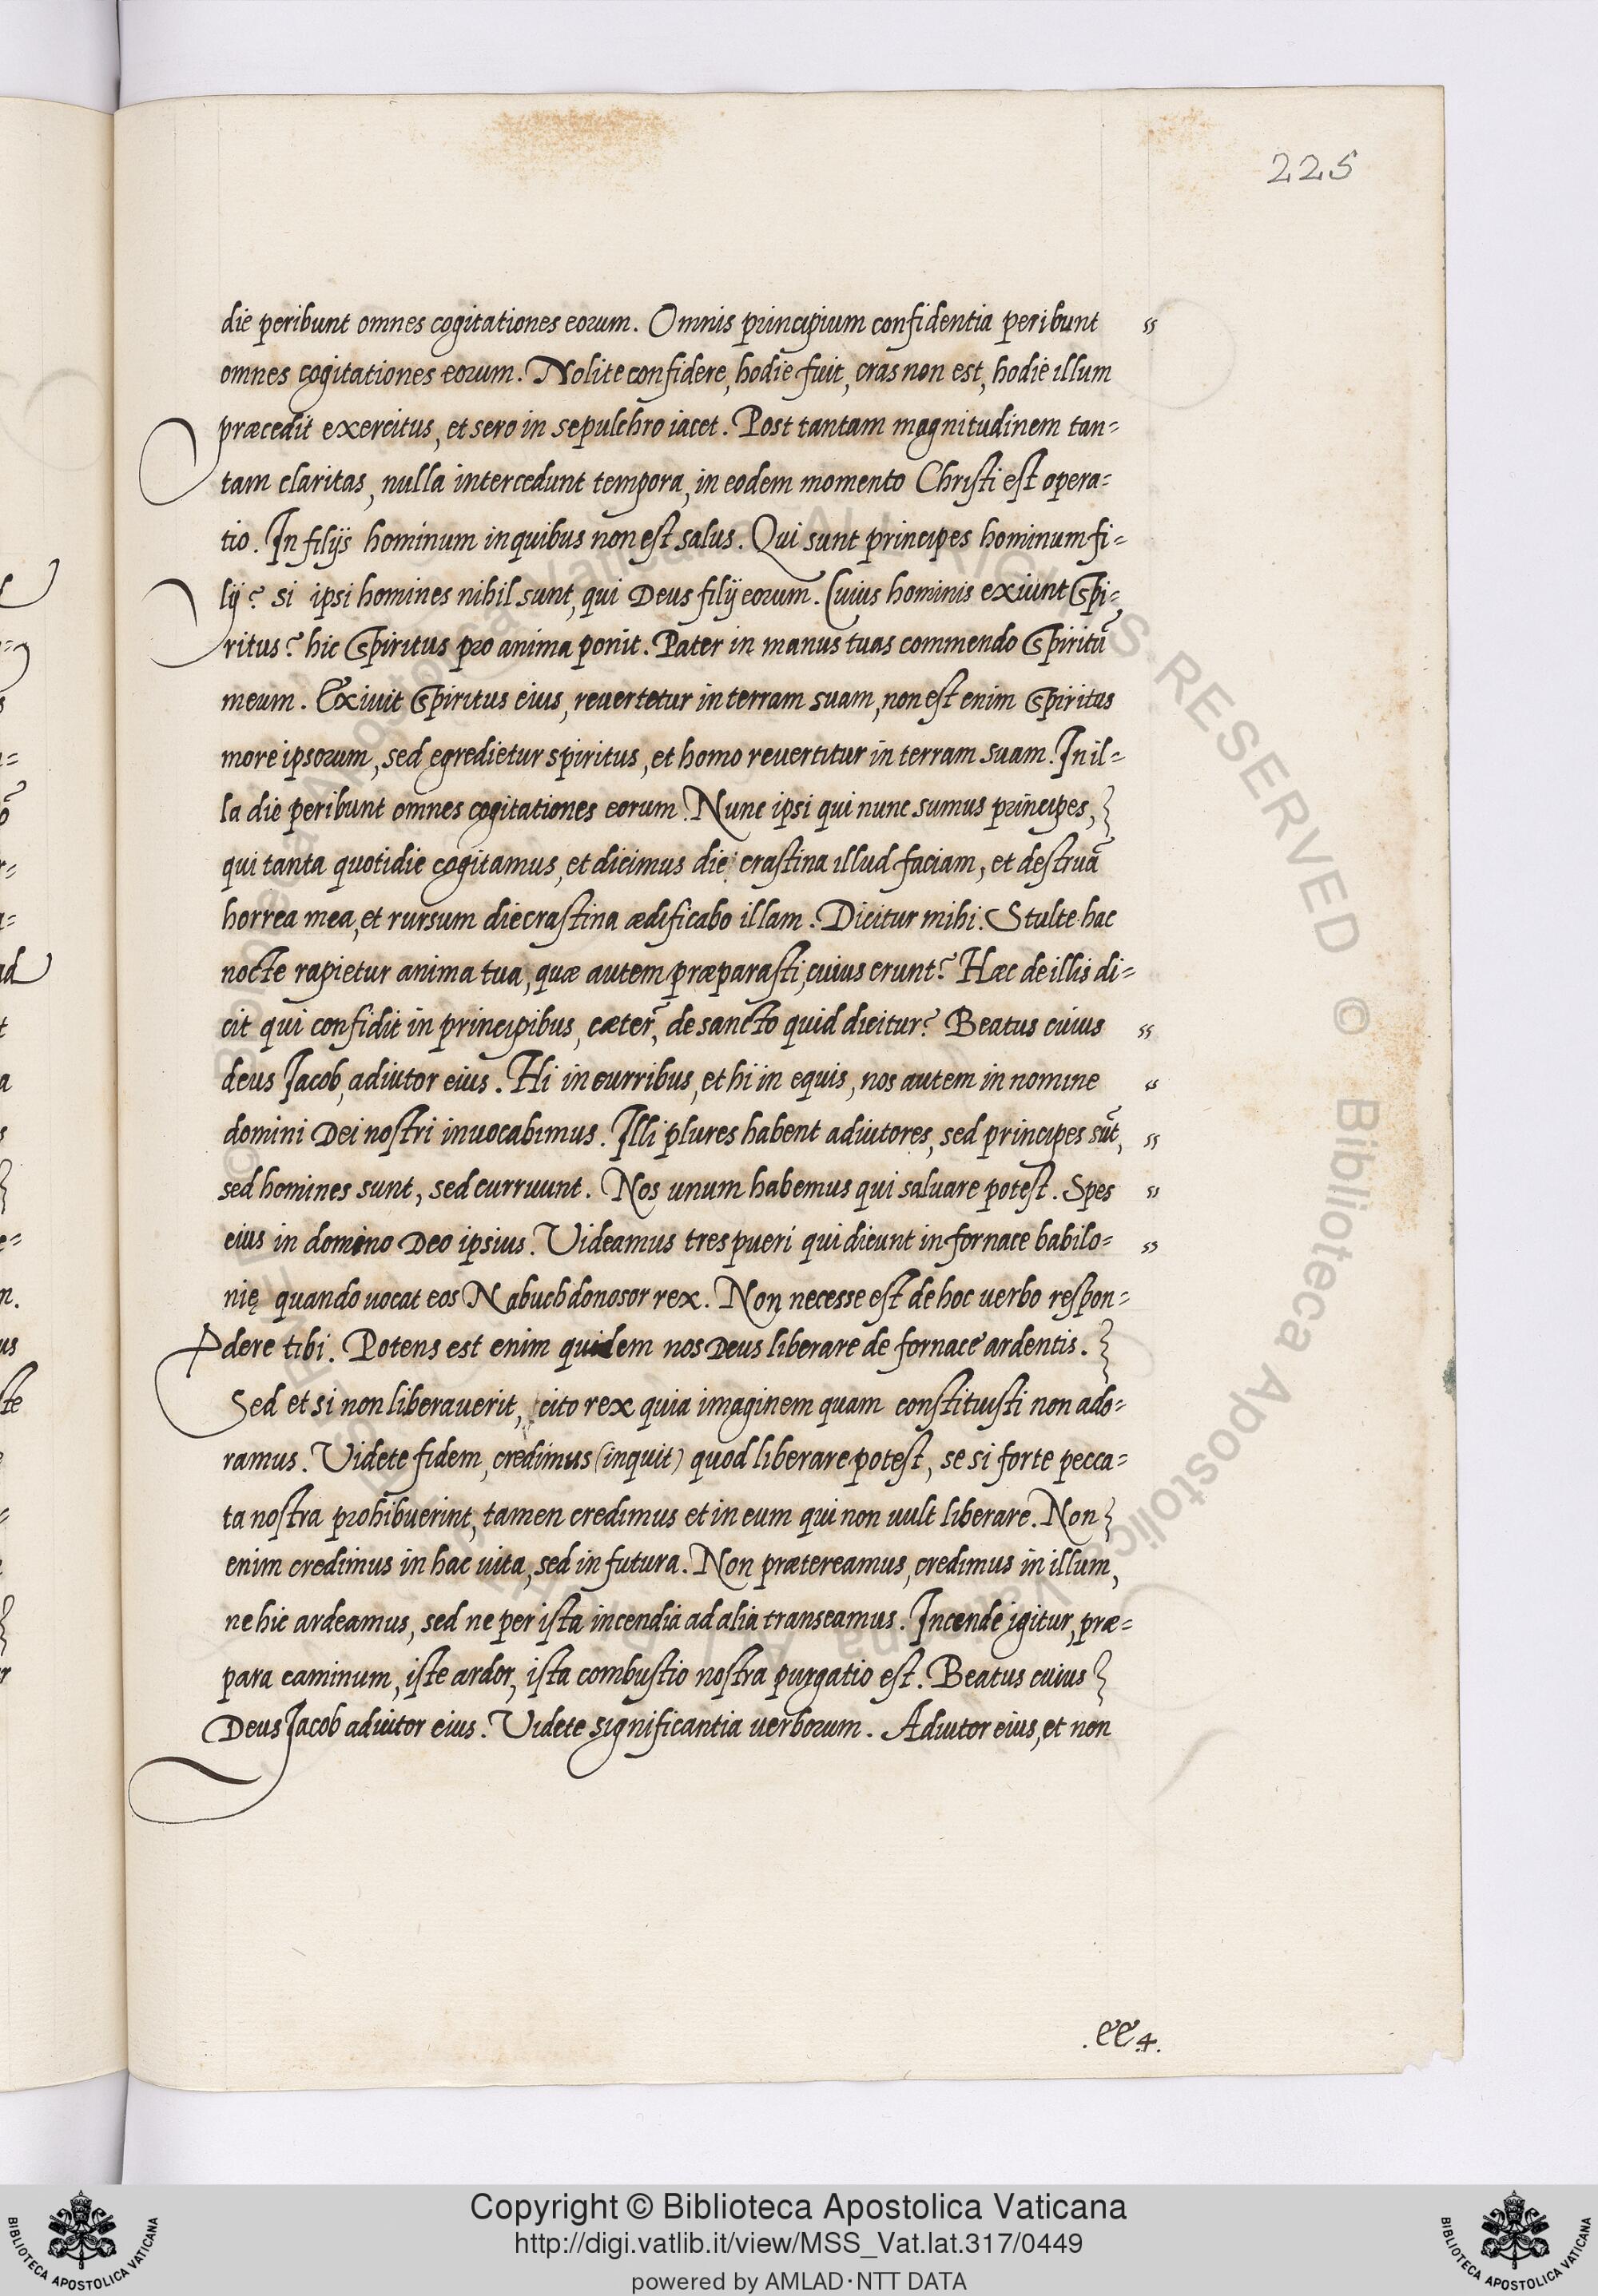 225
die peribunt omnes cogitationes eorum. Omnis principium confidentia peribunt "
omnes cogitationes eorum. Nolite confidere, hodie fuit, cras non est, hodie illum
præcedit exercitus, et sero in sepulchro iacet. Post tantam magnitudinem tan=
tam claritas, nulla intercedunt tempora, in eodem momento Christi est opera=
tio. In filijs hominum in quibus non est salus. Qui sunt principes hominum fi=
lij? si ipsi homines nihil sunt, qui Deus filij eorum. Cuius hominis exiunt Spi=
ritus? hic Spiritus pro anima ponit. Pater in manus tuas commendo Spiritū
meum. Exiuit Spiritus eius, reuertetur in terram suam, non est enim Spiritus
more ipsorum, sed egredietur spiritus, et homo reuertitur in terram suam. In il=
la die peribunt omnes cogitationes eorum. Nunc ipsi qui nunc sumus principes,
qui tanta quotidie cogitamus, et dicimus die crastina illud faciam, et destruā
horrea mea, et rursum die crastina ædificabo illam. Dicitur mihi. Stulte hac
nocte rapietur anima tua, quæ autem præparasti, cuius erunt? Hæc de illis di=
cit qui confidit in principibus, cæter, de sancto quid dicitur? Beatus cuius "
deus Jacob, adiutor eius. Hi in curribus, et hi in equis, nos autem in nomine "
domini Dei nostri inuocabimus. Illi plures habent adiutores, sed principes sūt, "
sed homines sunt, sed curruunt. Nos unum habemus qui saluare potest. Spes "
eius in domino Deo ipsius. Uideamus tres pueri qui dicunt in fornace babilo= "
nię quando uocat eos Nabuchdonosor rex. Non necesse est de hoc uerbo respon=
dere tibi. Potens est enim quidem nos Deus liberare de fornace ardentis.
Sed et si non liberauerit, cito rex quia imaginem quam constituisti non ado=
ramus. Videte fidem, credimus (inquit) quod liberare potest, se si forte pecca=
ta nostra prohibuerint, tamen credimus et in eum qui non uult liberare. Non
enim credimus in hac uita, sed in futura. Non prætereamus, credimus in illum,
ne hic ardeamus, sed ne per ista incendia ad alia transeamus. Incende igitur, præ=
para caminum, iste ardor, ista combustio nostra purgatio est. Beatus cuius
Deus Jacob adiutor eius. Videte significantia uerborum. Adiutor eius, et non
.ee4.
Copyright © Biblioteca Apostolica Vaticana
http://digi.vatlib.it/view/MSS_Vat.lat.317/0449
powered by AMLAD·NTT DATA